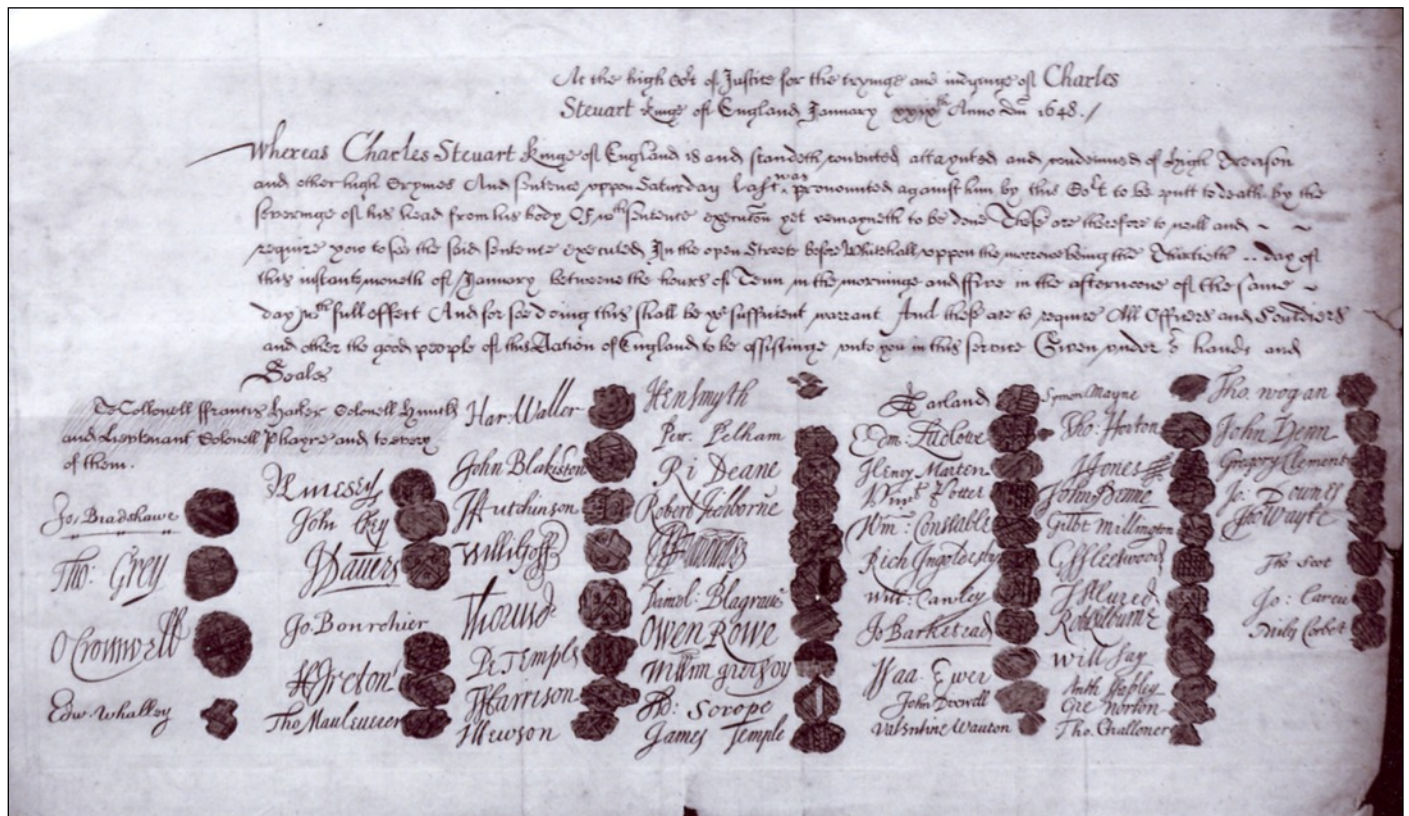 At the high Cort of Justice for the tryinge and iudginge of Charles
Steuart kinge of England January xxixth Anno Dni 1648./
Whereas Charles Steuart kinge of England is and standeth convicted attaynted and condemned of high Treason
and other high Crymes And sentence uppon Saturday last was pronounced against him by this Cort to be putt to death by the
severinge of his head from his body Of wch sentence execucon yet remayneth to be done These are therefore to will and
require you to see the said sentence executed In the open Streete before Whitehall uppon the morrowe being the Thirtieth day of
this instante moneth of January betweene the hours of Tenn in the morninge and ffive in the afternoone of the same
day wth full effect And for soe doing this shall be yor sufficient warrant And these are to require All Officers and Souldiers
and other the good people of this Nation of England to be assistinge unto you in this service Given under or hands and
Seales
To Collonell ffrancis Hacker Colonell Huncks
and Lieutenant Colonell Phayre and to every
of them.
Jo: Bradshawe
Tho: Grey
O Cromwell
Edw: Whalley
M Livesey
John Okey
J Dauers
Jo: Bourchier
H Ireton
Tho Mauleuerer
Har: Waller
John Blakiston
J Hutchinson
Willi Goff
Tho Pride
Pe Temple
T Harrison
J Hewson
Hen Smyth
Per: Pelham
Ri Deane
Robert Tichborne
H Edwardes
Daniel Blagraue
Owen Rowe
Willm Purefoy
Ad: Scrope
James Temple
A Garland
Edm: Ludlowe
Henry Marten
Vinct Potter
Wm: Constable
Rich Ingoldesby
Will: Cawley
Jo Barkstead
Isaa Ewer
John Dixwell
Valentine Wauton
Symon Mayne
Tho: Horton
J Jones
John Penne
Gilbt Millington
G Fleetwood
J Alured
Rob Lilburne
Will Say
Anth Stapley
Gre Norton
Tho Challoner
Tho Wogan
John Venn
Gregory Clement
Jo: Downes
Tho Wayte
Tho Scot
Jo: Carew
Miles Corbet